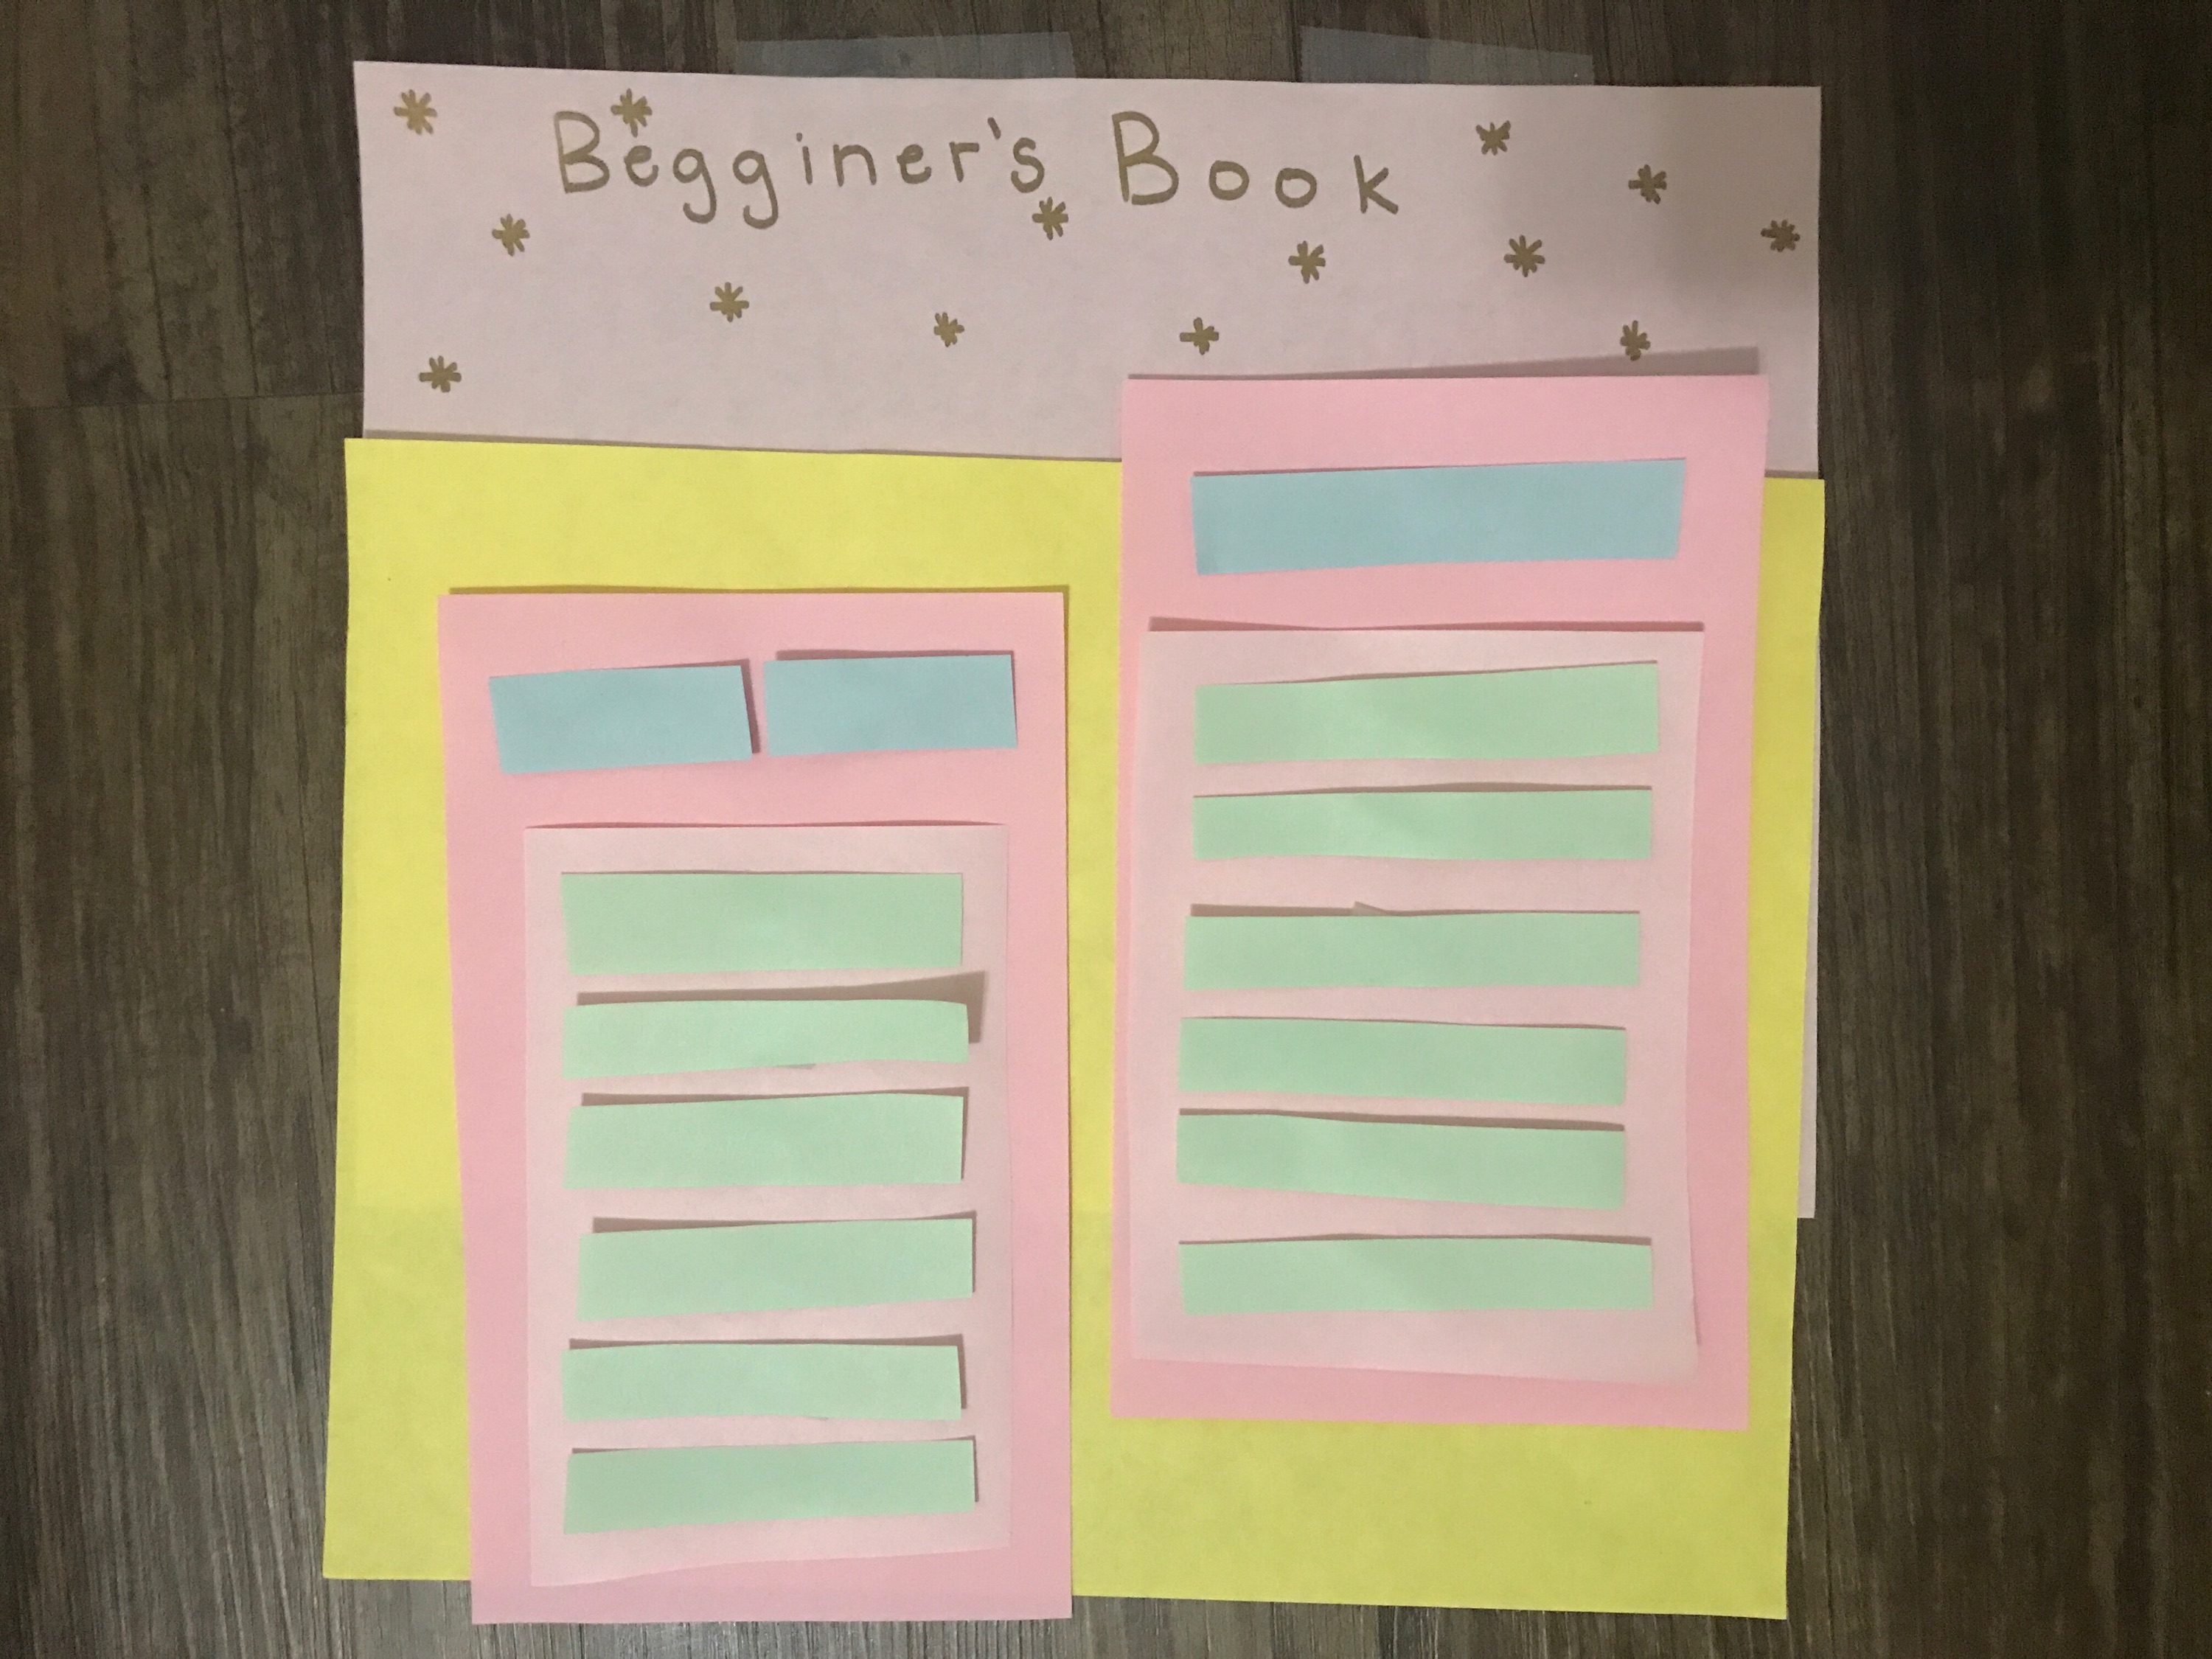 Begginer's Book